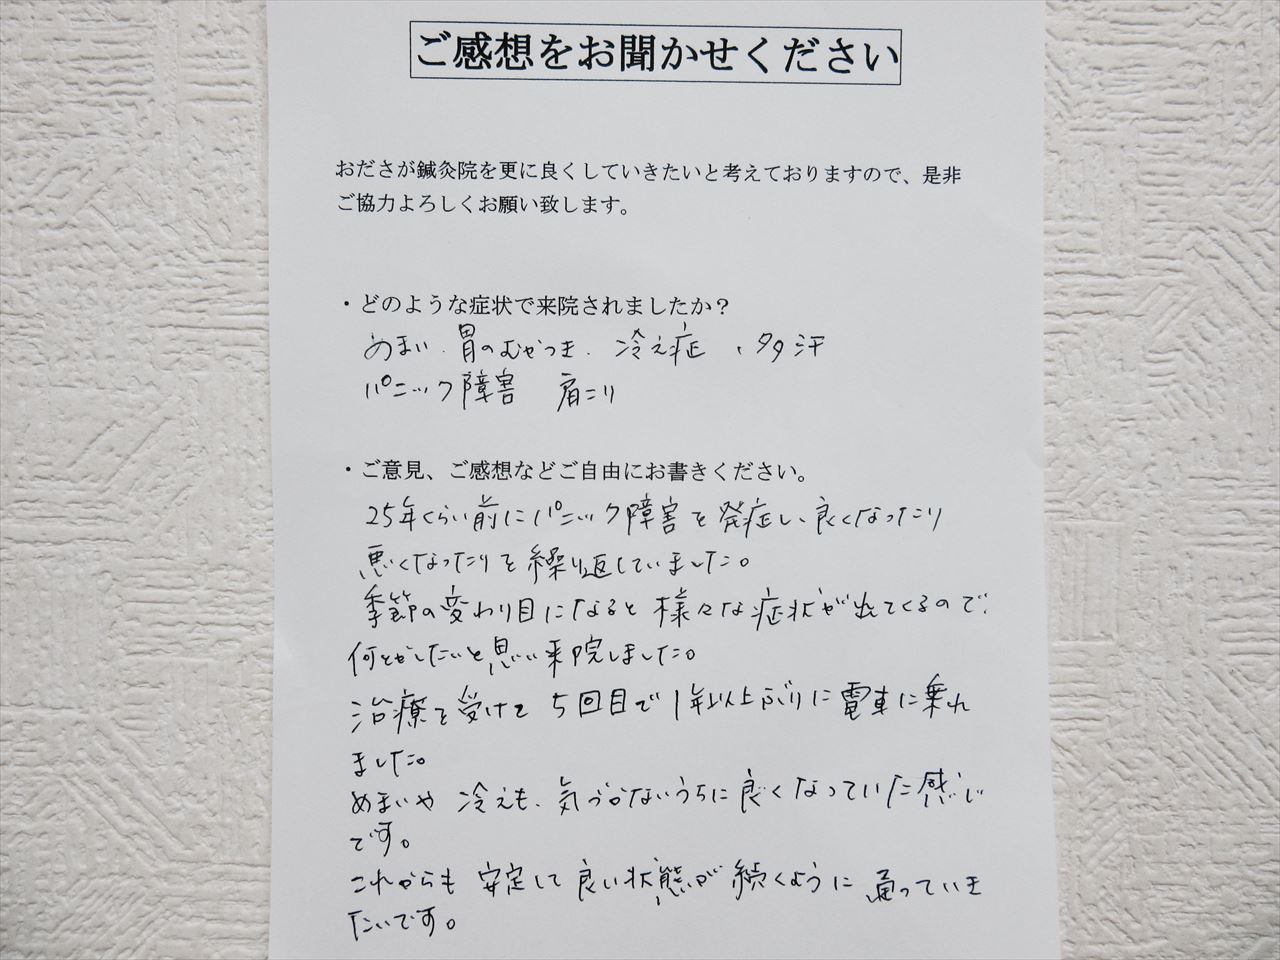 ご感想をお聞かせください
おださが鍼灸院を更に良くしていきたいと考えておりますので、是非
ご協力よろしくお願い致します。
・どのような症状で来院されましたか？
めまい．胃のむかつき．冷え症、多汗
パニック障害　肩こり
・ご意見、ご感想などご自由にお書きください。
25年くらい前にパニック障害を発症し、良くなったり
悪くなったりを繰り返していました。
季節の変わり目になると様々な症状が出てくるので、
何とかしたいと思い来院しました。
治療を受けて5回目で1年以上ぶりに電車に乗れ
ました。
めまいや冷えも、気づかないうちに良くなっていた感じ
です。
これからも安定して良い状態が続くように通っていき
たいです。